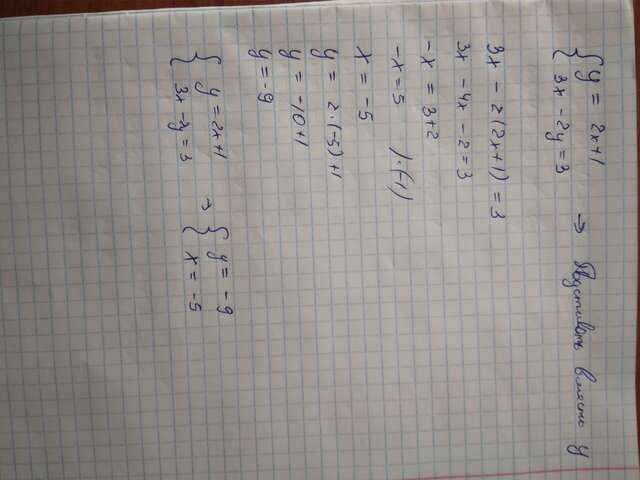 { y = 2x+1
3x - 2y = 3 → Подставить вместо y
3x - 2(2x+1) = 3
3x - 4x - 2 = 3
-x = 3+2
-x = 5 / · (-1)
x = -5
y = 2·(-5)+1
y = -10+1
y = -9
{ y = 2x+1
3x - 2y = 3 → { y = -9
x = -5